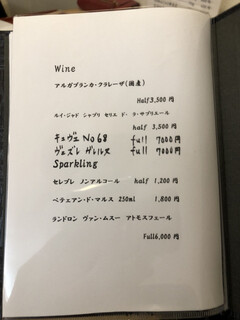 Wine
アルガブランカ・クラレーザ(国産)
Half 3,500 円
ルイ・ジャド シャブリ セリエ ド ラ サブリエール
half 3,500 円
キュヴェ No68 full 7000円
ヴェズレ full 7000円
Sparkling
セレブレ ノンアルコール half 1,200 円
ペティアン・ド・マルス 250ml 1,800 円
ランドロン ヴァン・ムスー アトモスフェール
Full 6,000 円